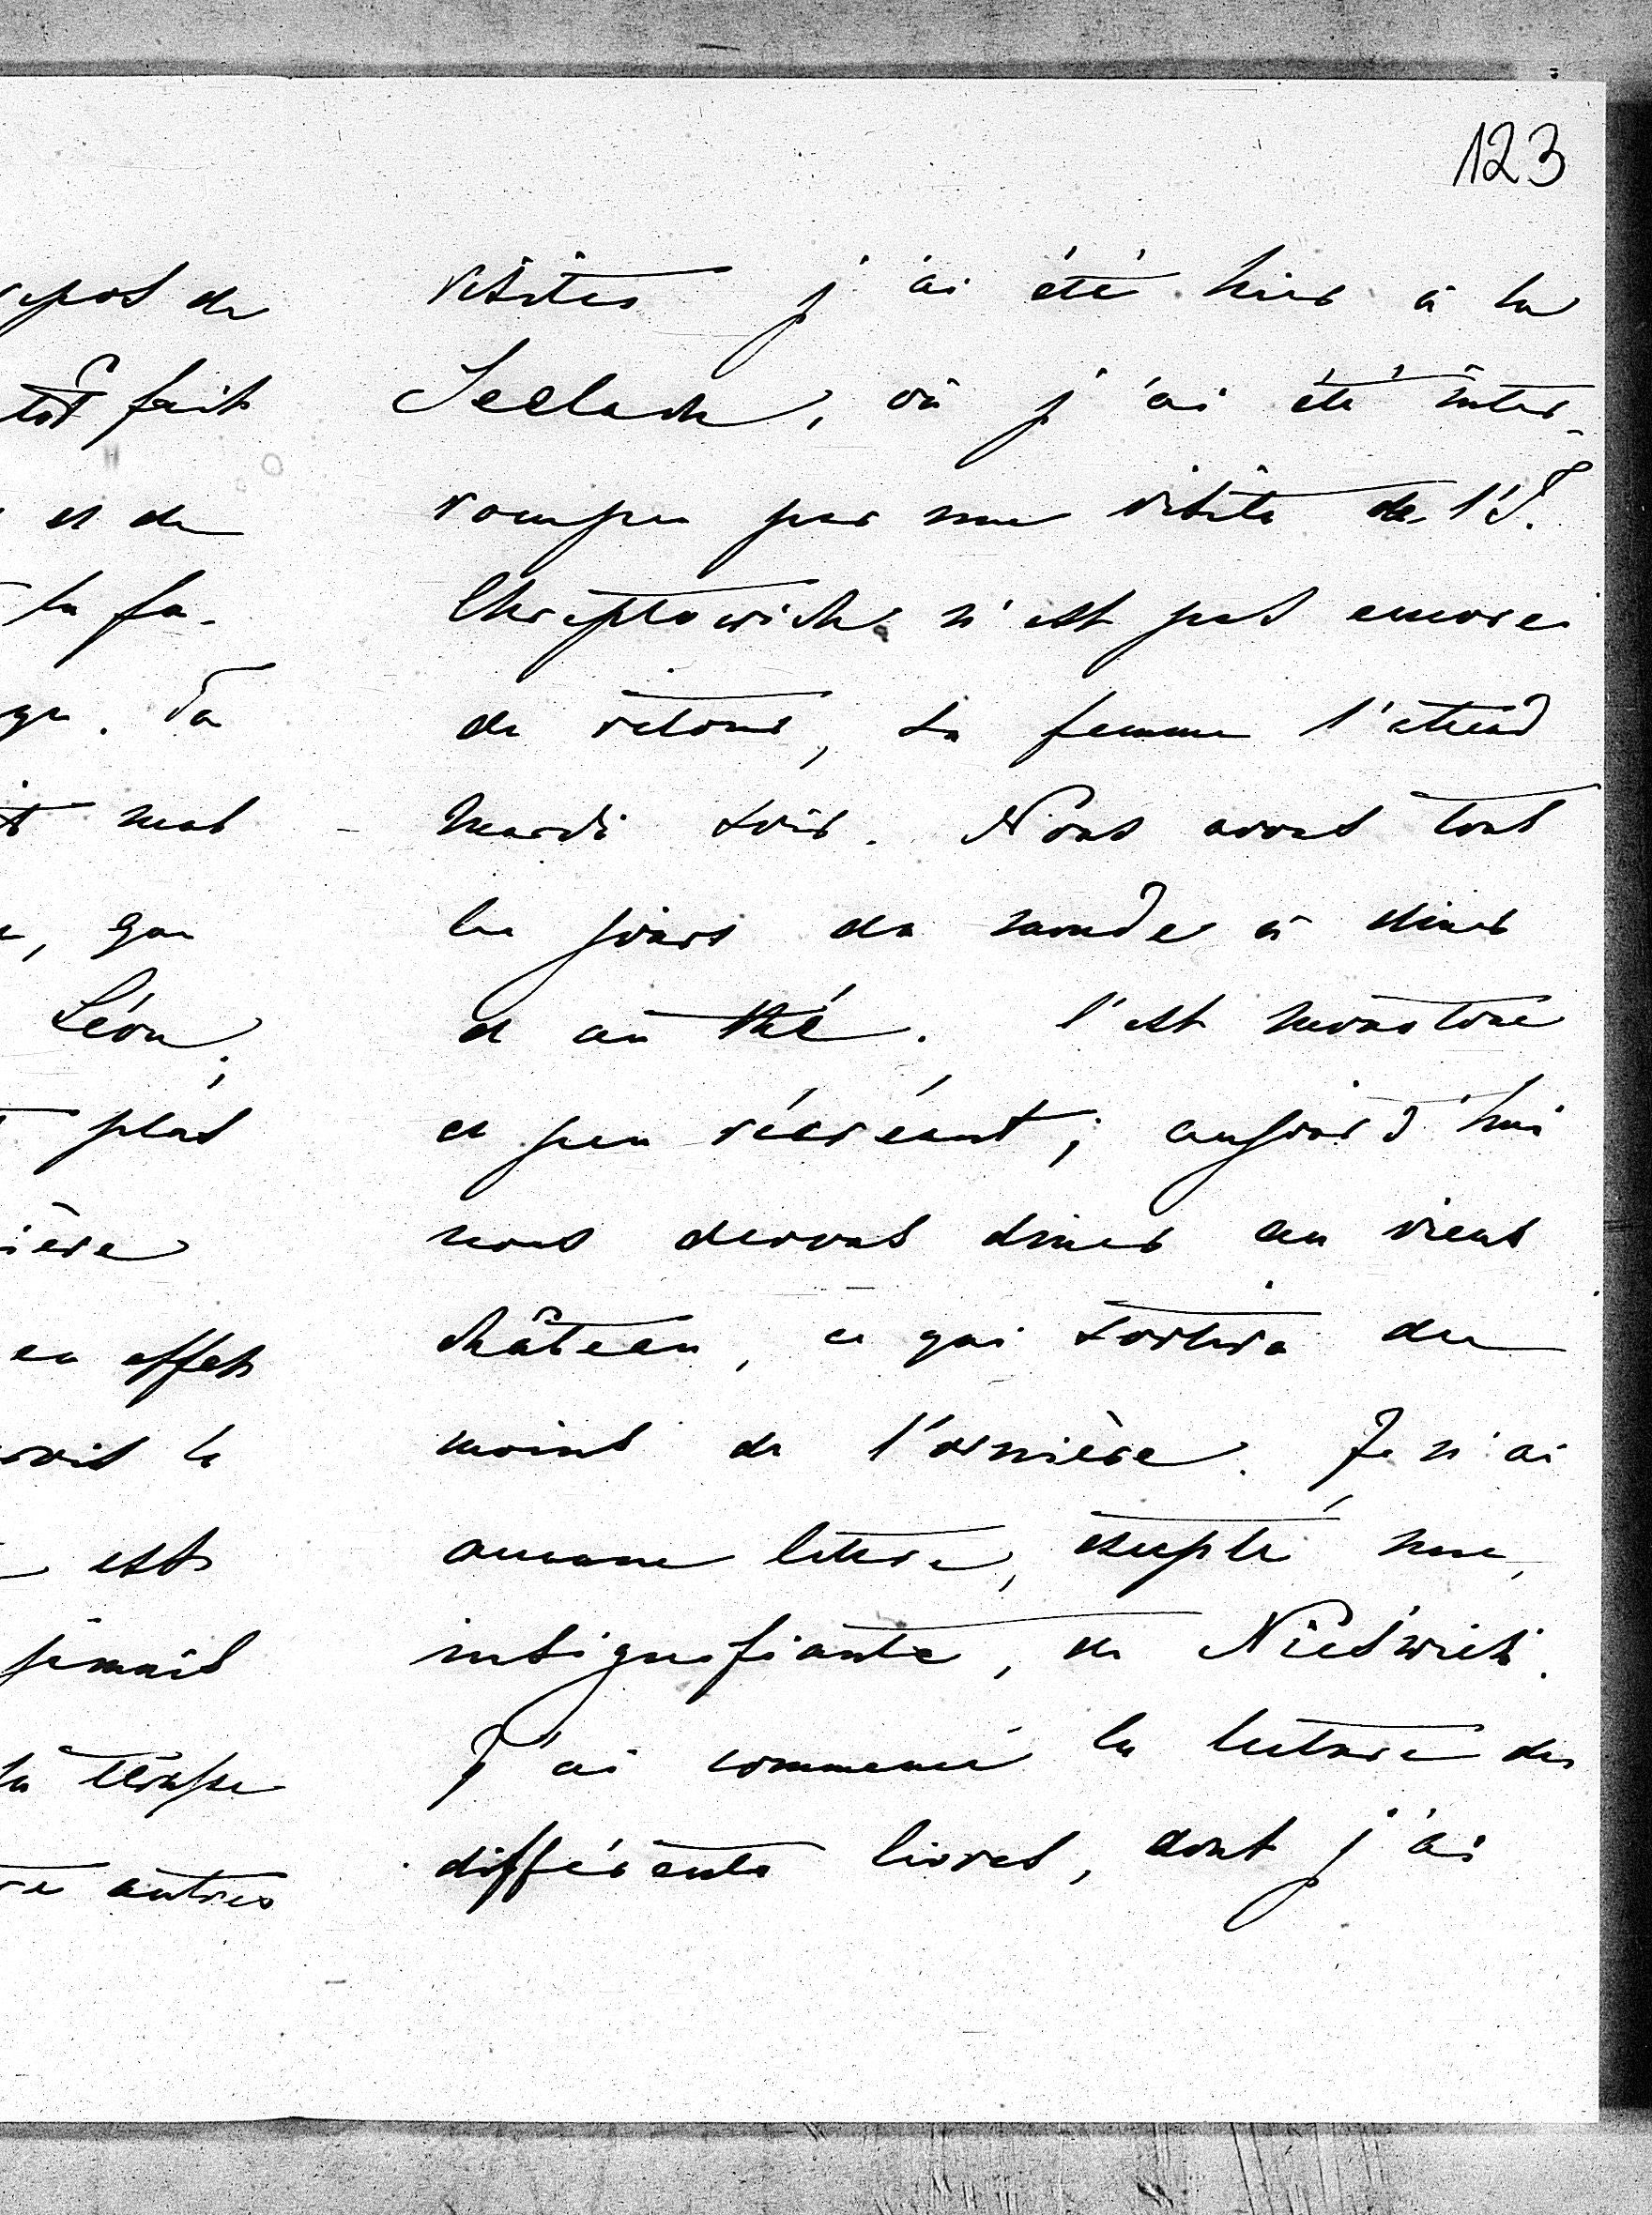 123
visites j'ai été hier à la
Seelach, où j'ai été inter-
rompu par une visite de l'I.
Chreptowich n'est pas encore
de retour, sa femme l'attend
mardi soir. Nous avons tous
les jours du monde à diner
et au thé. C'est monotone
et peu récréant; aujourd'hui
nous devons diner au vieux
château, ce qui sortira du
moins de l'ornière. Je n'ai
aucune lettre, excepté une,
insignifiante, de Nieświeś.
J'ai commencé la lecture des
différents livres, dont j'ai
repos de
tôt fait
et de
la fa-
Ta
mal
, que
Léon;
plus
ière
en effet
est
jamais
la troupe
autres